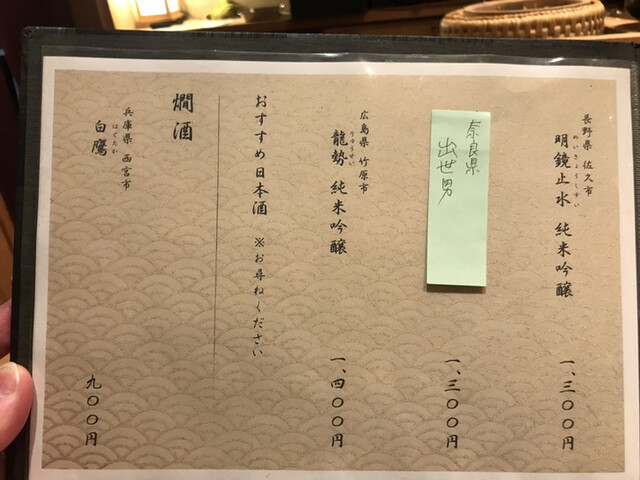 長野県 佐久市
めいきょうしすい
明鏡止水 純米吟醸
一、三〇〇円
奈良県
出世男
一、三〇〇円
広島県 竹原市
りゅうせい
龍勢 純米吟醸
一、四〇〇円
おすすめ日本酒 ※お尋ねください
燗酒
兵庫県 西宮市
はくたか
白鷹
九〇〇円